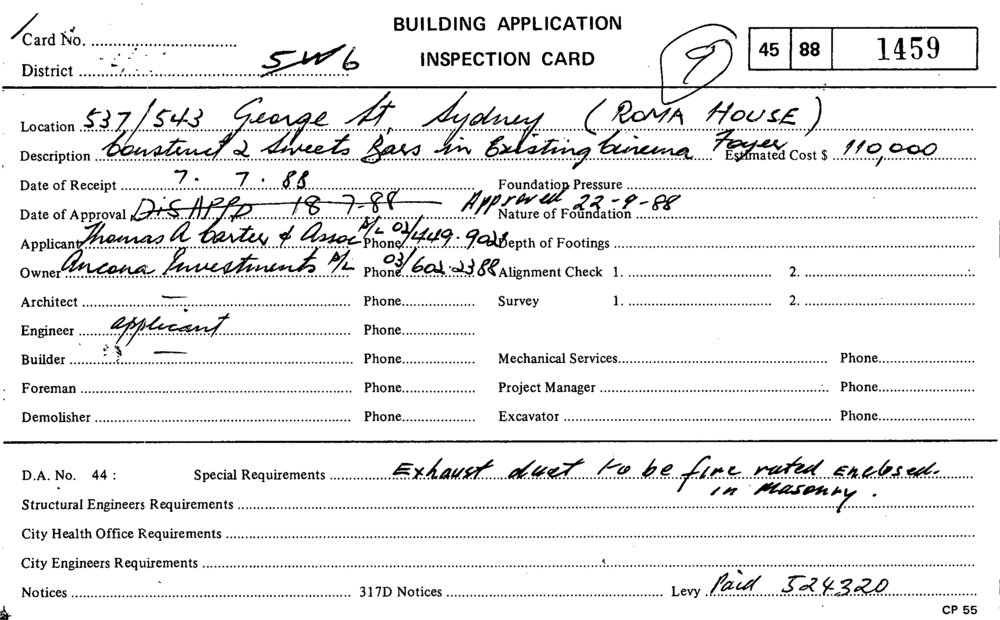 BUILDING APPLICATION
INSPECTION CARD
Card No.
District SW6
9
45 88 1459
Location 537/543 George St, Sydney (ROMA HOUSE)
Description Construct 2 Sweets Bars in Existing Cinema Foyer Estimated Cost $ 110,000
Date of Receipt 7. 7. 88 Foundation Pressure
Date of Approval DISAPPD 18 7-88 Approved 22-9-88 Nature of Foundation
Applicant Thomas A Carter & Assoc P/L Phone 02/449-9023 Depth of Footings
Owner Ancona Investments P/L Phone 03/602-2388 Alignment Check 1. 2.
Architect — Phone Survey 1. 2.
Engineer applicant Phone
Builder — Phone Mechanical Services Phone
Foreman Phone Project Manager Phone
Demolisher Phone Excavator Phone
D.A. No. 44 : Special Requirements Exhaust duct to be fire rated enclosed.
in masonry.
Structural Engineers Requirements
City Health Office Requirements
City Engineers Requirements
Notices 317D Notices Levy Paid 524320
CP 55